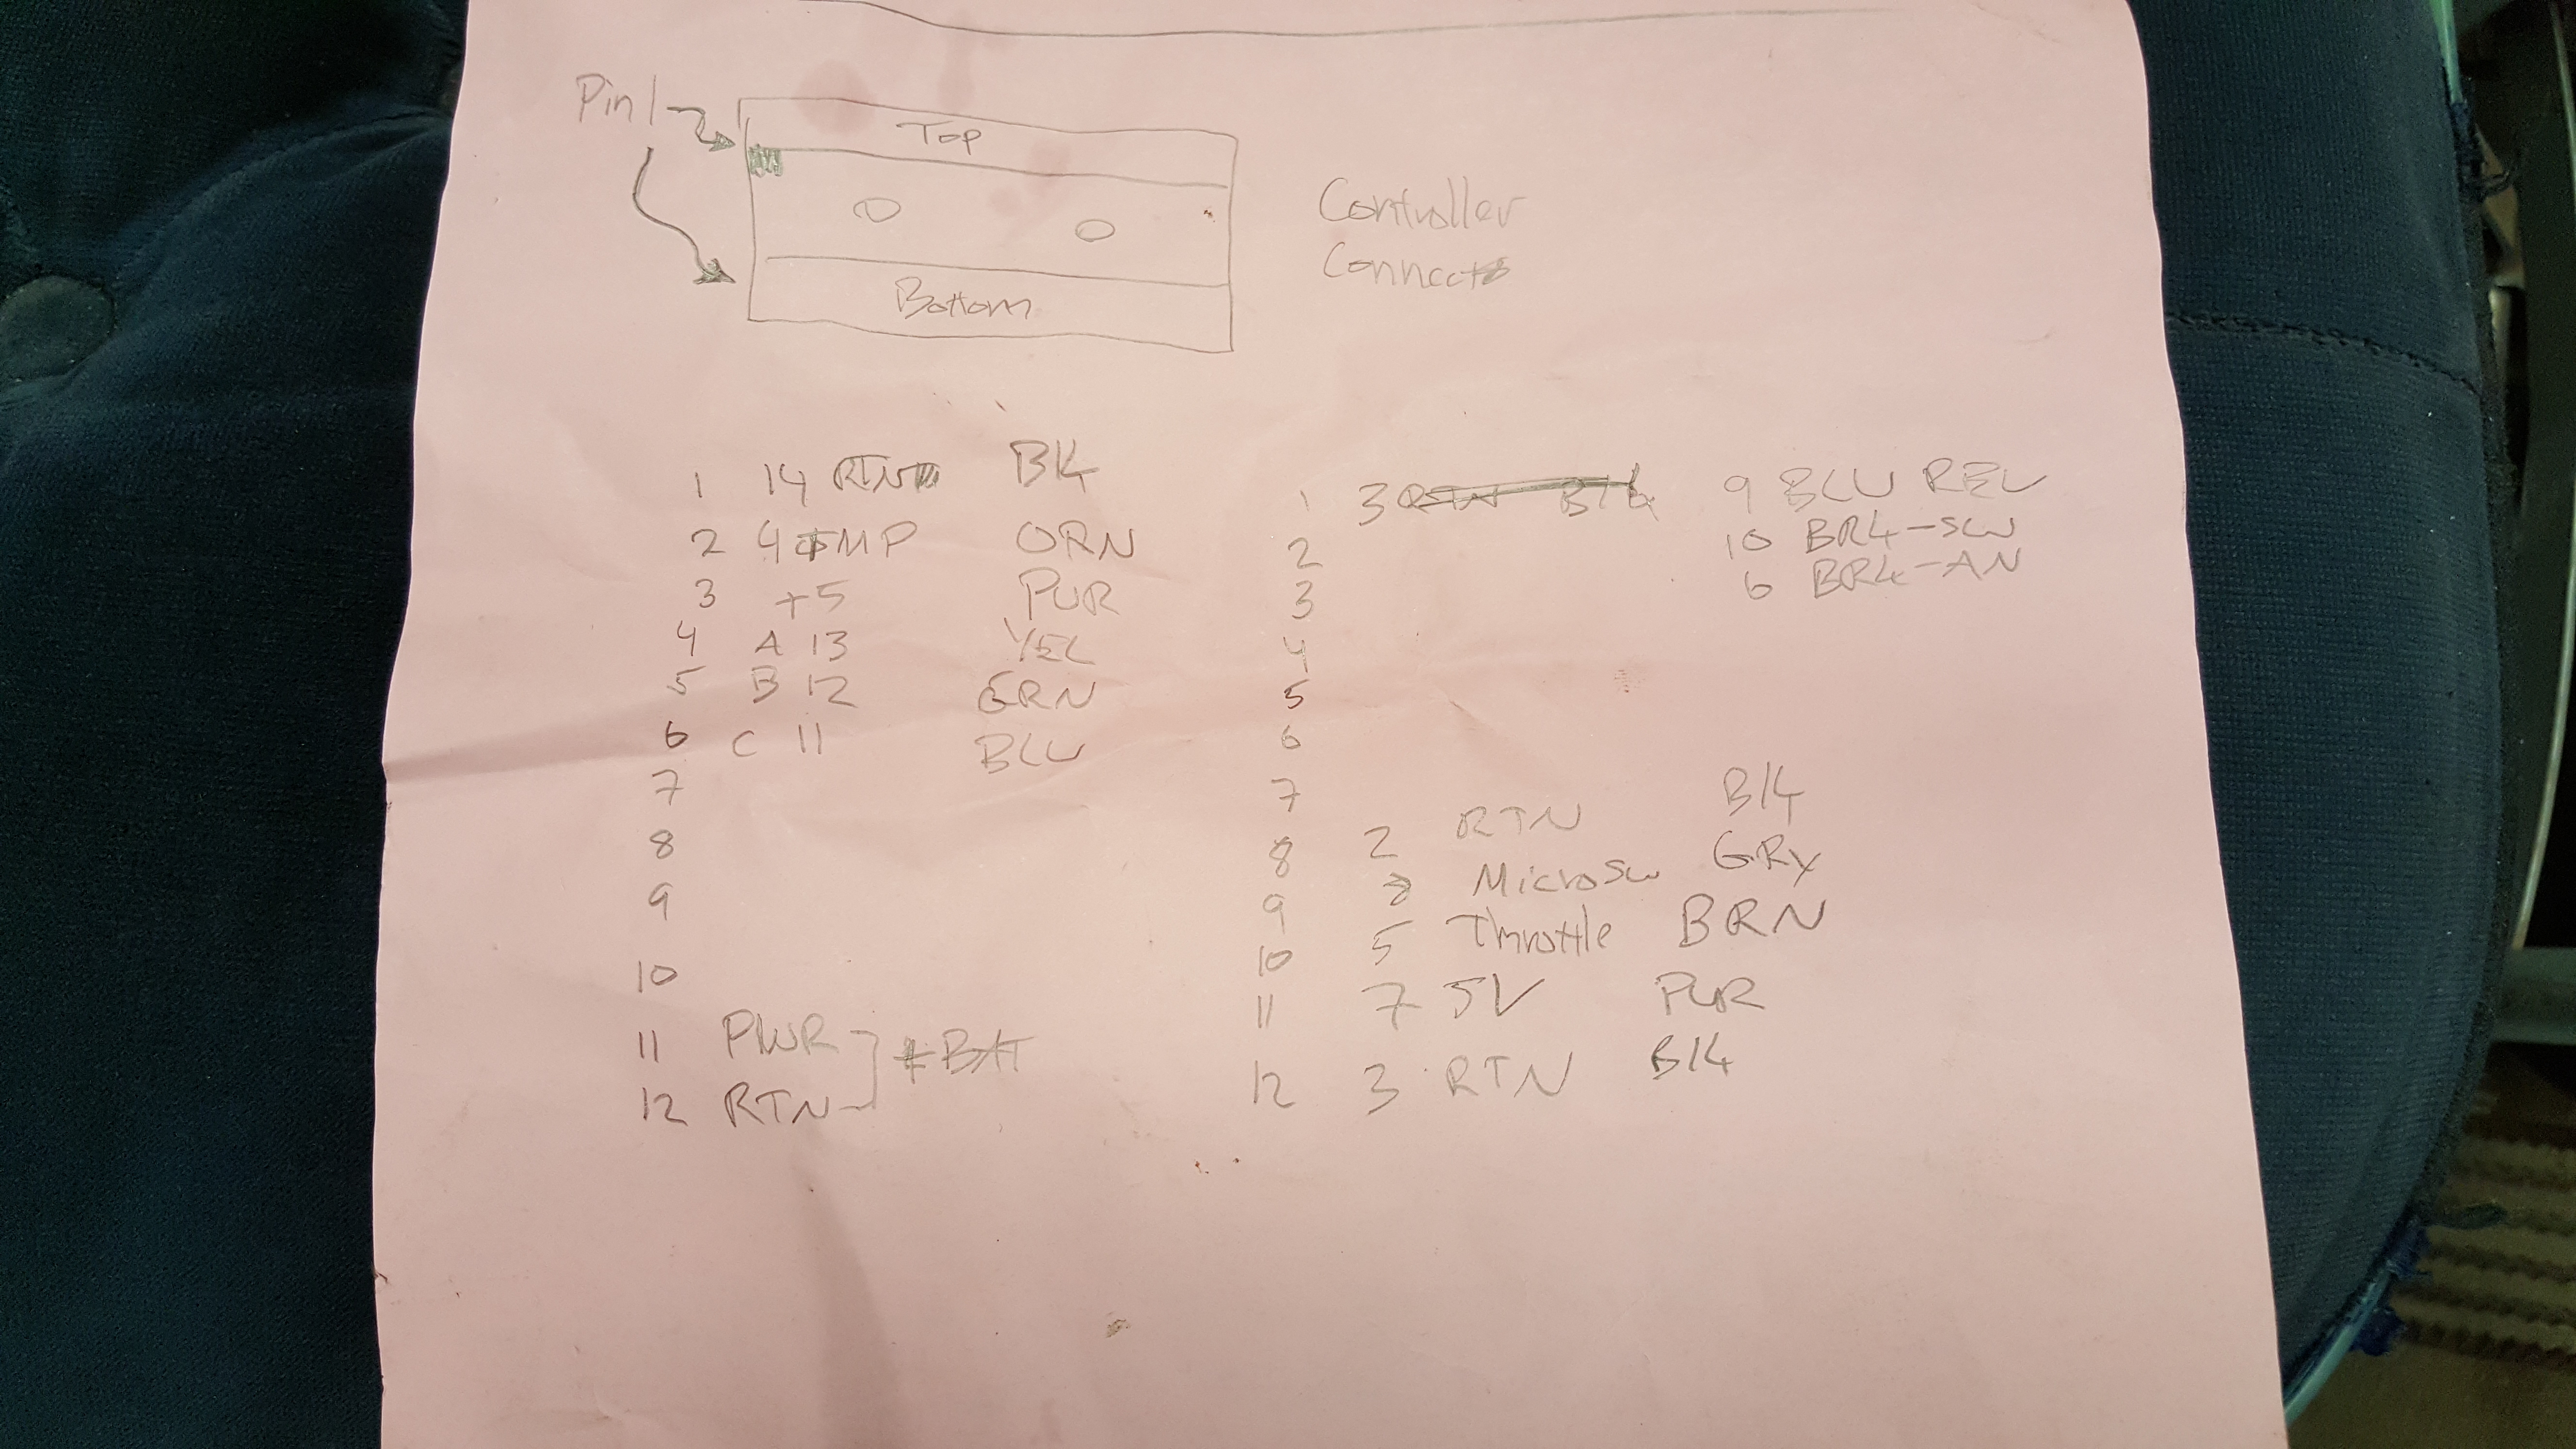 Pin 1
Top
Controller
Connect
Bottom
1 14 RTN Blk
2 4 TMP ORN
3 +5 PUR
4 A 13 YEL
5 B 12 GRN
6 C 11 BLU
7
8
9
10
11 PWR
12 RTN
+BAT
1 3 RTN Blk
2
3
4
5
6
7
8 2 RTN Blk
9 Microsw GRY
10 5 Throttle BRN
11 7 5V PUR
12 3 RTN Blk
9 BLU REV
10 BRk-SW
6 BRk-AN